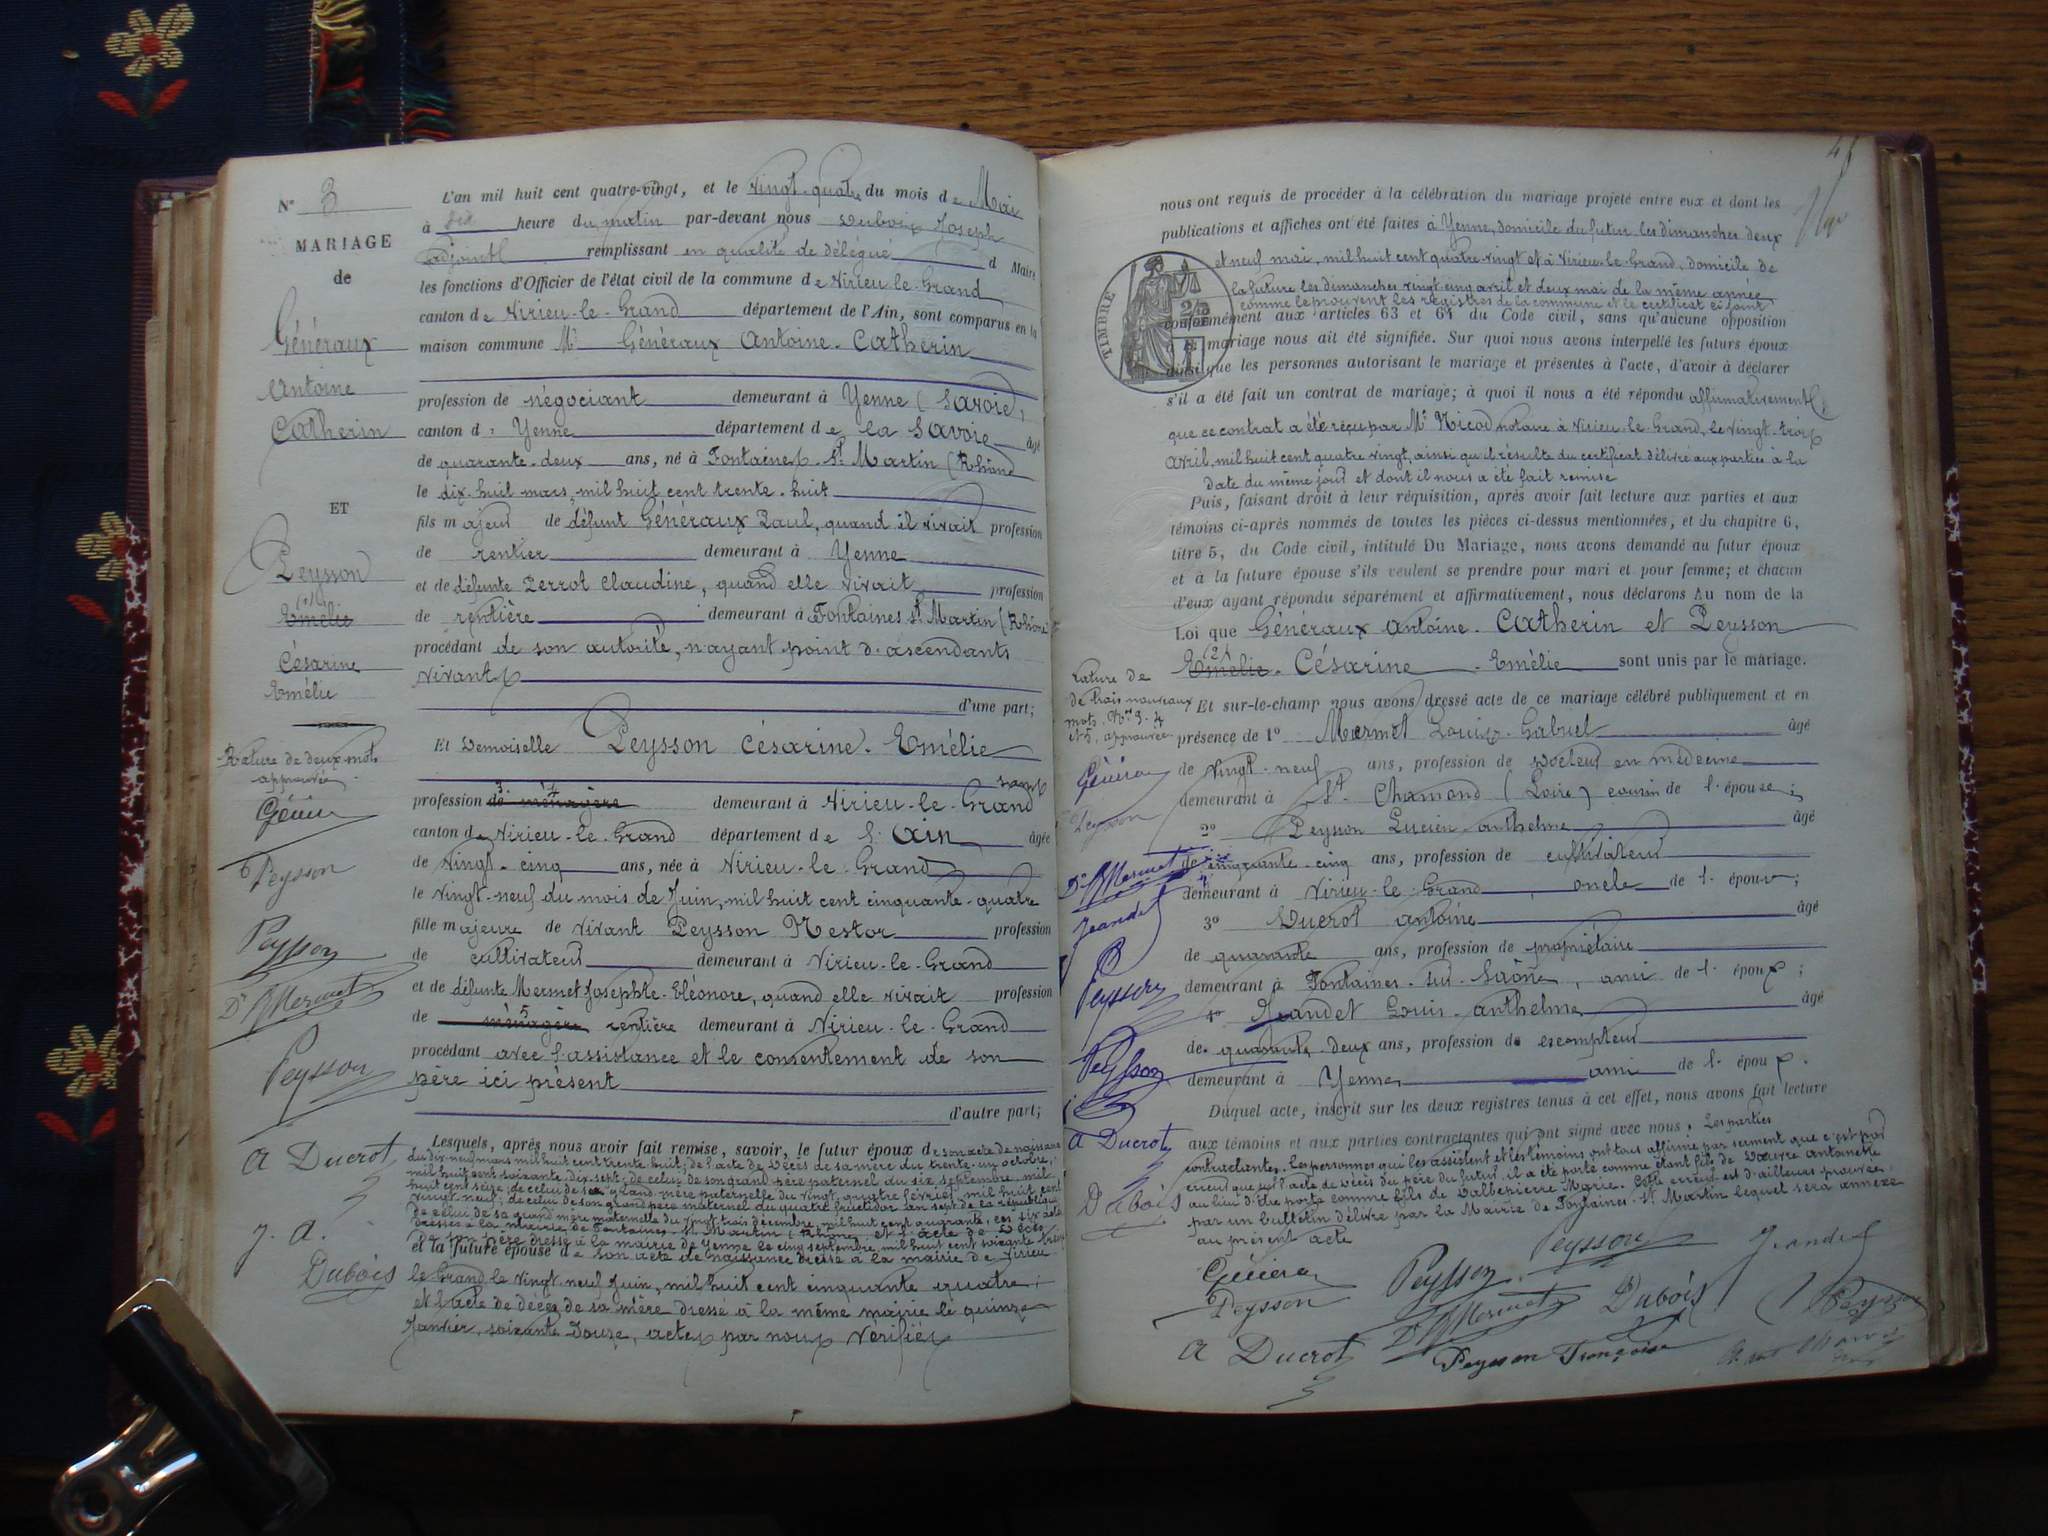 N° 3
MARIAGE
de
Généraux
Antoine
Catherin
ET
Peysson
(1)
Emélie
Césarine
Emélie
Rature de deux mots
approuvée
Peysson
Peysson
Dr Mermet
Peysson
A Ducrot
J. A.
Dubois
L'an mil huit cent quatre-vingt, et le vingt-quatre du mois de Mai
à dix heure du matin par-devant nous Dubois Joseph
adjoint remplissant en qualité de délégué d Maire
les fonctions d'Officier de l'état civil de la commune de Virieu-le-Grand
canton de Virieu-le-Grand département de l'Ain, sont comparus en la
maison commune Mr Généraux Antoine-Catherin
profession de négociant demeurant à Yenne (Savoie)
canton d: Yenne département de la Savoie âgé
de quarante-deux ans, né à Fontaines St Martin (Rhône
le dix-huit mars, mil huit cent trente-huit
fils majeur de défunt Généraux Paul, quand il vivait profession
de rentier demeurant à Yenne
et de défunte Perrot Claudine, quand elle vivait profession
de rentière demeurant à Fontaines St Martin (Rhône)
procédant de son autorité, n'ayant point d'ascendants
vivants
d'une part;
Et Demoiselle Peysson Césarine-Emélie
sans
profession de ménagère demeurant à Virieu-le-Grand
canton de Virieu-le-Grand département de l'Ain âgée
de vingt-cinq ans, née à Virieu-le-Grand
le vingt-neuf du mois de Juin, mil huit cent cinquante-quatre
fille majeure de vivant Peysson Nestor profession
de cultivateur demeurant à Virieu-le-Grand
et de défunte Mermet Josephte-Eléonore, quand elle vivait profession
de ménagère rentière demeurant à Virieu-le-Grand
procédant avec l'assistance et le consentement de son
père ici présent
d'autre part;
Lesquels, après nous avoir fait remise, savoir, le futur époux de son acte de naissance
du dix-neuf mars mil huit cent trente huit; de l'acte de décès de sa mère du trente-un octobre,
mil huit cent soixante-dix-sept; de celui de son grand père paternel du six septembre, mil
huit cent seize; de celui de sa grand-mère paternelle du vingt-quatre février mil huit cent
vingt-neuf; de celui de son grand père maternel du quatre fructidor an sept de la république
de celui de sa grand'mère maternelle du vingt trois décembre, mil huit cent quarante, ces six actes
dressés à la mairie de Fontaines St Martin (Rhône) et l'acte de décès
de son père dressé à la mairie de Yenne le cinq septembre, mil huit cent soixante treize
et la future épouse de son acte de naissance dressé à la mairie de Virieu-
le-Grand le vingt-neuf Juin, mil huit cent cinquante quatre;
et l'acte de décès de sa mère dressé à la même mairie le quinze
Janvier, soixante douze, actes par nous vérifiés
nous ont requis de procéder à la célébration du mariage projeté entre eux et dont les
publications et affiches ont été faites à Yenne, domicile du futur les dimanches deux
et neuf mai, mil huit cent quatre-vingt et à Virieu-le-Grand, domicile de
la future les dimanches vingt cinq avril et deux mai de la même année
comme le prouvent les registres de la commune et le certificat ci-joint
TIMBRE
conformément aux articles 63 et 64 du Code civil, sans qu'aucune opposition
à ce mariage nous ait été signifiée. Sur quoi nous avons interpellé les futurs époux
ainsi que les personnes autorisant le mariage et présentes à l'acte, d'avoir à déclarer
s'il a été fait un contrat de mariage; à quoi il nous a été répondu affirmativement
que ce contrat a été reçu par Me Nicod notaire à Virieu-le-Grand, le vingt-trois
avril, mil huit cent quatre vingt, ainsi qu'il résulte du certificat délivré aux parties à la
date du même jour et dont il nous a été fait remise
Puis, faisant droit à leur réquisition, après avoir fait lecture aux parties et aux
témoins ci-après nommés de toutes les pièces ci-dessus mentionnées, et du chapitre 6,
titre 5, du Code civil, intitulé Du Mariage, nous avons demandé au futur époux
et à la future épouse s'ils veulent se prendre pour mari et pour femme; et chacun
d'eux ayant répondu séparément et affirmativement, nous déclarons Au nom de la
Loi que Généraux Antoine-Catherin et Peysson
(2)
Emélie-Césarine-Emélie sont unis par le mariage.
Et sur-le-champ nous avons dressé acte de ce mariage célébré publiquement et en
présence de 1° Mermet Louis-Gabriel âgé
de vingt-neuf ans, profession de docteur en médecine
demeurant à St Chamond (Loire) cousin de l'épouse;
2° Peysson Lucien-Anthelme âgé
de cinquante-cinq ans, profession de cultivateur
demeurant à Virieu-le-Grand, oncle de l'épouse;
3° Ducrot Antoine âgé
de quarante ans, profession de propriétaire
demeurant à Fontaines-sur-Saône, ami de l'époux;
4° Jeandet Louis-Anthelme âgé
de quarante-deux ans, profession de escompteur
demeurant à Yenne ami de l'époux.
Duquel acte, inscrit sur les deux registres tenus à cet effet, nous avons fait lecture
aux témoins et aux parties contractantes qui ont signé avec nous. Les parties
contractantes. Les personnes qui les assistent et les témoins ont tous affirmé par serment que c'est par
erreur que sur l'acte de décès du père du futur, il a été porté comme étant fils de Antoinette
au lieu d'être porté comme fils de Dalbepierre Marie. Cette erreur est d'ailleurs prouvée
par un bulletin délivré par la Mairie de Fontaines-St Martin lequel sera annexé
au présent acte
Rature de
de trois nouveaux
mots, Nos 3-4
et 5, approuvée
Peysson
Dr Mermet
Jeandet
Peysson
Peysson
A Ducrot
Dubois
Peysson
Peysson
Peysson
Jeandet
Dr Mermet
Dubois
Peysson
A Ducrot
Peysson Françoise